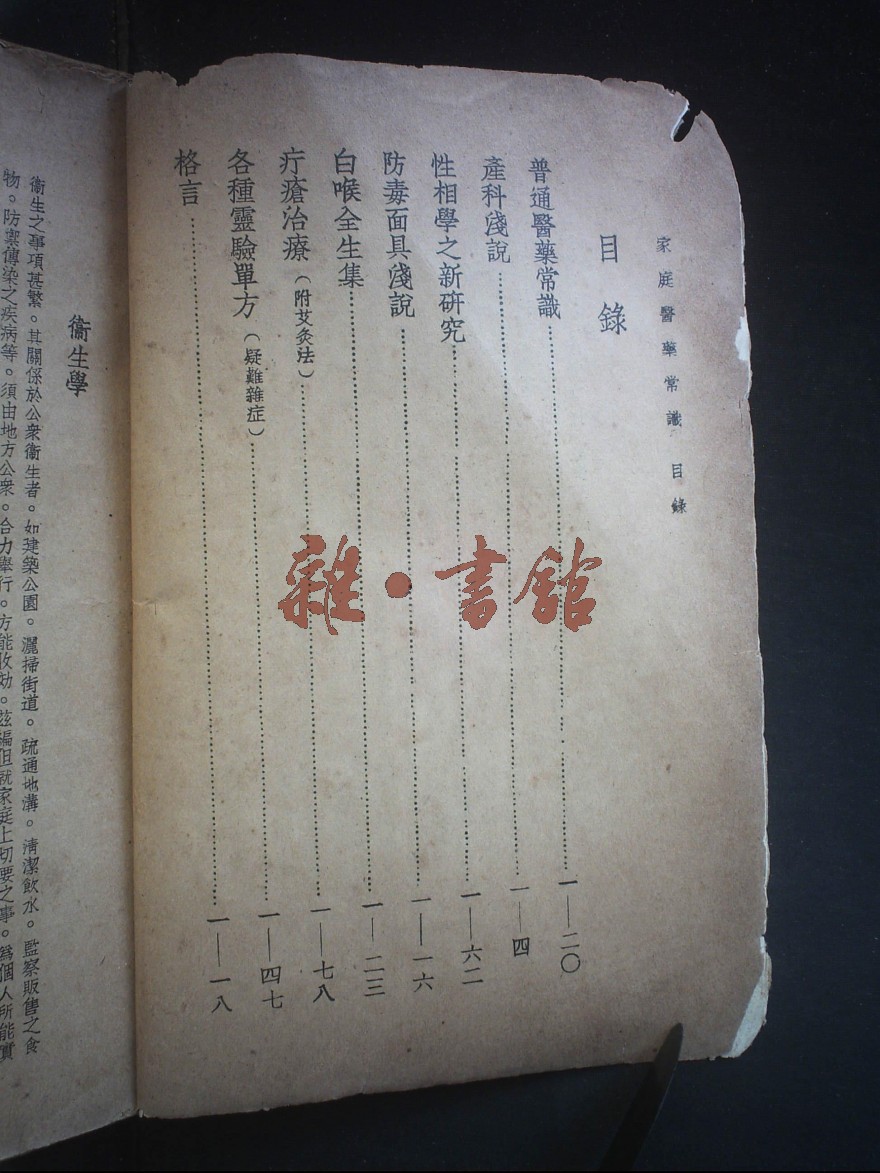 家庭醫藥常識 目錄
目錄
普通醫藥常識 一—二〇
產科淺說 一—四
性相學之新研究 一—六二
防毒面具淺說 一—一六
白喉全生集 一—二三
疔瘡治療(附艾灸法) 一—七八
各種靈驗單方(疑難雜症) 一—四七
格言 一—一八
雜·書館
衞生學
衞生之事項甚繁。其關係於公衆衞生者。如建築公園。灑掃街道。疏通地溝。淸潔飮水。監察販售之食
物。防禦傳染之疾病等。須由地方公衆。合力舉行。方能收効。茲編但就家庭上切要之事。爲個人所能實